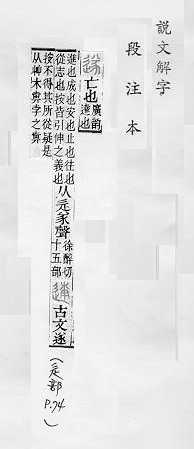 說文解字
段注本
遂
亡也
廣韵
達也
進也成也安也止也往也
從志也按皆引伸之義也
从辵㒸聲
徐醉切
十五部
古文遂
按不得其所從疑是
(辵部 P.74)